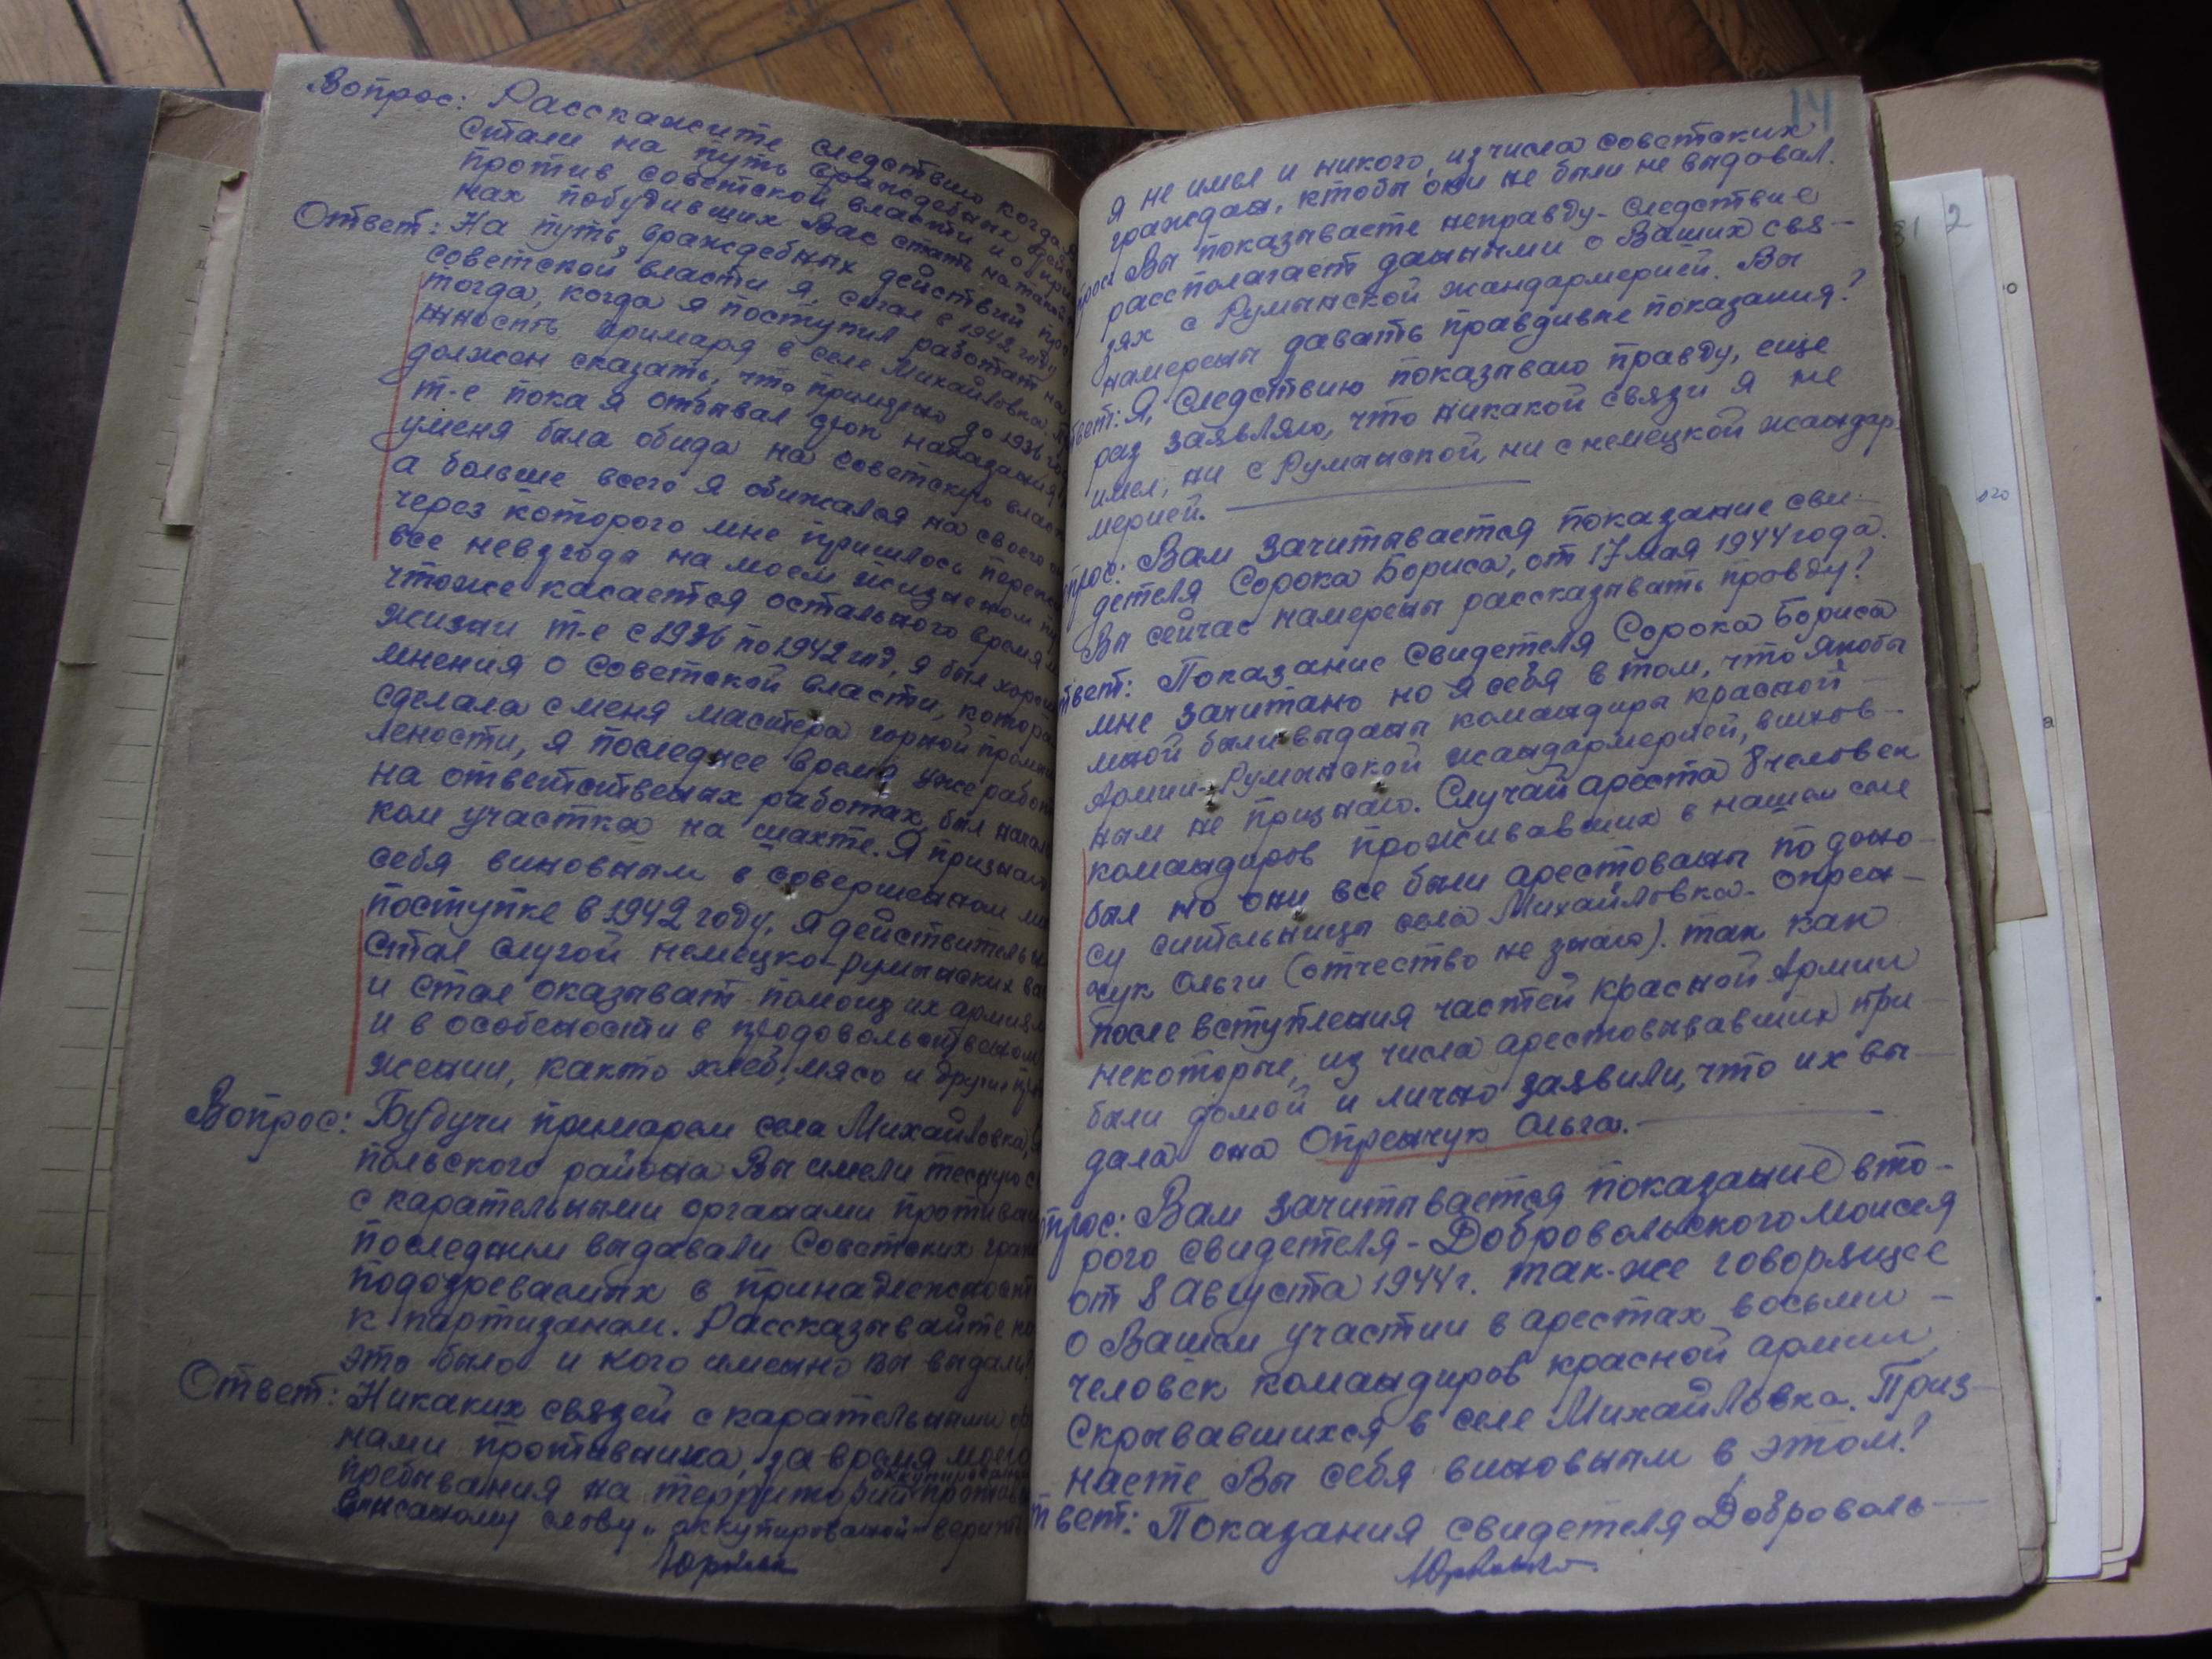 Вопрос: Расскажите следствию когда
стали на путь враждебных дейст
против советской власти и о при
нах побудивших Вас стать на такой
Ответ: На путь, враждебных действий про
советской власти я, стал в 1942 году
тогда, когда я поступил работат на
жность примаря в селе Михайловка.
должен сказать, что примерно до 1936 го
т-е пока я отбывал срок наказания
уменя была обида на советскую власть
а больше всего я обижался на своего
через которого мне пришлось перене
все невзгоды на моем жизненом
чтоже касается остального время
жизни т-е с 1936 по 1942 год, я был хорош
мнения о советской власти, котора
сделала с меня мастера горной промыш
лености, я последнее время уже работ
на ответственых работах, был начал
ком участка на шахте. Я признаю
себя виновным в совершеном
поступке в 1942 году, я действитель
стал слугой немецко-румынских
и стал оказыват помощ их армиям
и в особености в продовольственом
жении, както хлеб, мясо и другие
Вопрос: Будучи примарем села Михайловка,
польского района Вы имели тесную
с карательными органами против
последним выдавали Советских граж
подозреваемых в принадлежност
к партизанам. Рассказывайте
это было и кого имено вы выдали
Ответ: Никаких связей с карательными
нами противника, за время моего
пребывания на территорий
вписаному слову "оккупированой" верить
14
я не имел и никого, из числа советских
граждан, ктобы они не были не выдовал.
прос: Вы показываете неправду - следствие
рассполагает даными о Ваших свя-
зях с Румынской жандармерией. Вы
намерены давать правдивые показания?
твет: Я, Следствию показываю правду, еще
раз заявляю, что никакой связи я не
имел, ни с Румынской, ни с немецкой жандар-
мерией.
опрос: Вам зачитывается показание сви-
детеля Сорока Бориса, от 17 мая 1944 года.
Вы сейчас намерены рассказывать правду?
твет: Показание свидетеля Сорока Бориса
мне зачитано но я себя в том, что якобы
мной были выданы командиры красной
Армии - Румынской жандармерией, винов-
ным не признаю. Случай ареста 8 человек
командиров проживавших в нашем селе
был но они все были арестованы по доно-
су сительницы села Михайловка - Опрен-
чук Ольги (отчество не знаю). так как
после вступления частей красной Армии
некоторые, из числа арестовывавших при-
были домой и лично заявили, что их вы-
дала она Опренчук Ольга.
опрос: Вам зачитывается показание вто-
рого свидетеля - Добровольского Моисея
от 8 Августа 1944 г. так-же говорящее
о Вашем участии в арестах восьми
человек командиров красной армии,
Скрывавшихся в селе Михайловка. Приз-
наете Вы себя виновным в этом?
твет: Показания свидетеля Доброволь-